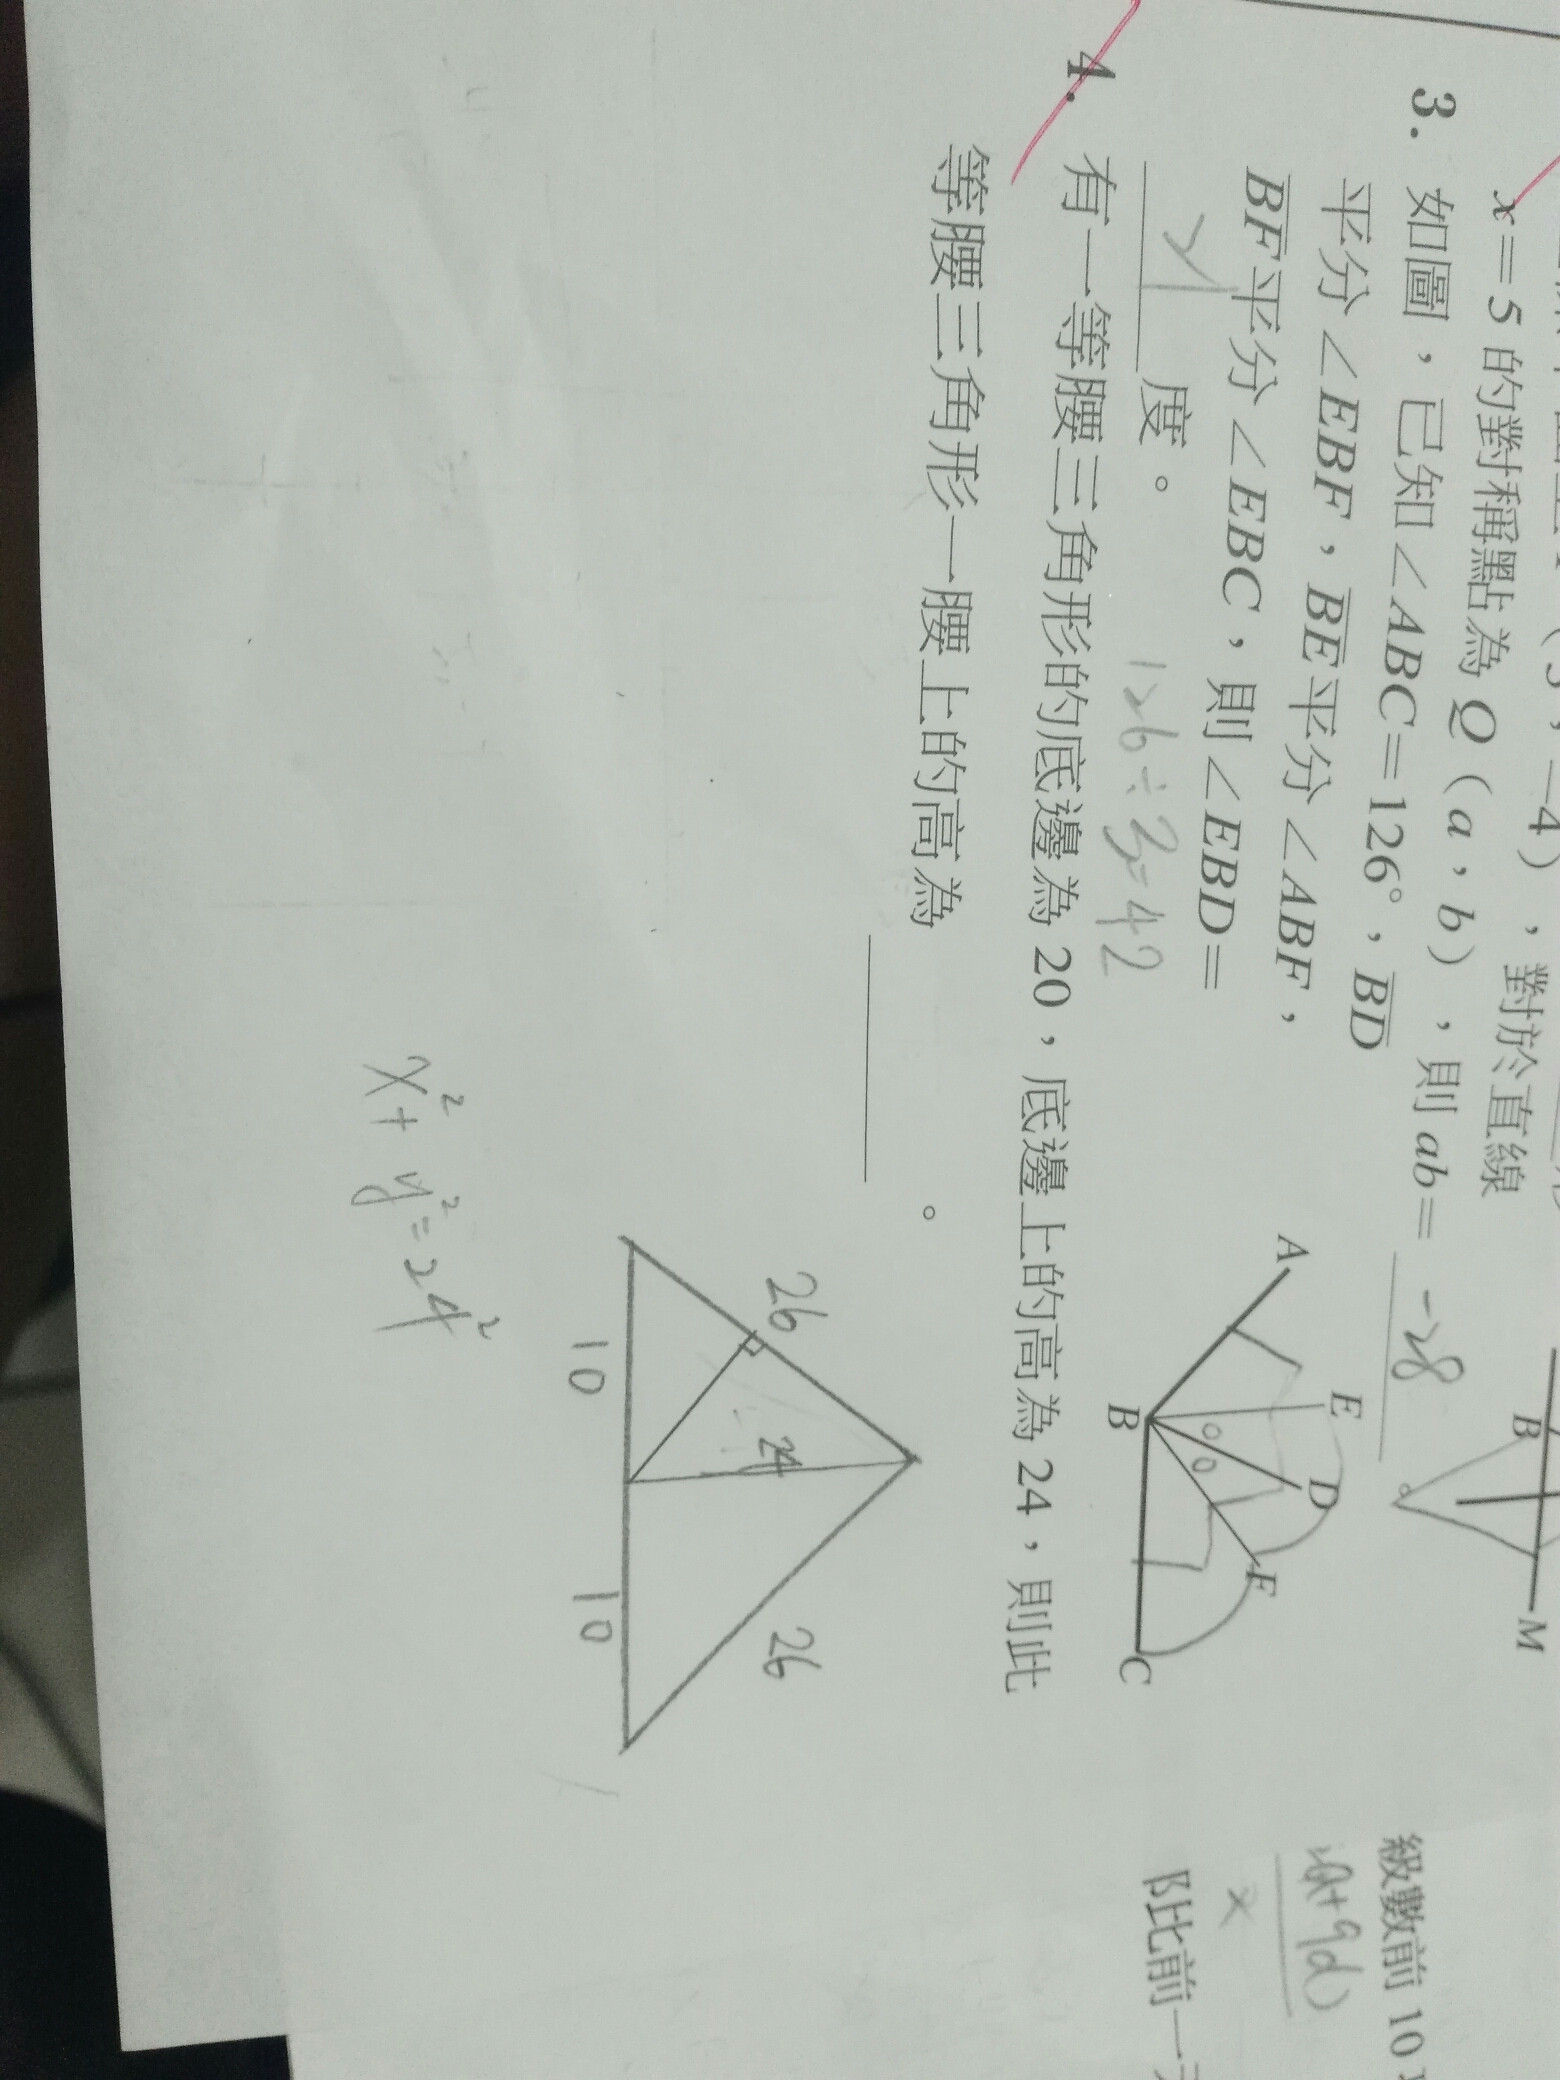 x=5 的對稱點為 Q（a，b），則 ab= -28
3. 如圖，已知∠ABC=126°，BD
平分∠EBF，BE平分∠ABF，
BF平分∠EBC，則∠EBD=
21 度。
126÷3=42
A
E
D
F
B
C
B
M
4. 有一等腰三角形的底邊為 20，底邊上的高為 24，則此
等腰三角形一腰上的高為　　　。
26
24
26
10
10
x²+y²=24²
級數前 10
比前一